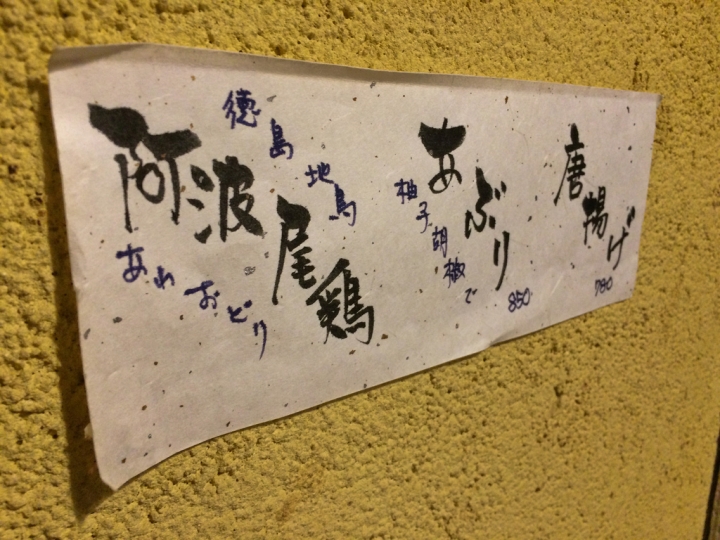 徳島地鳥
阿波尾鶏
あわおどり
あぶり
柚子胡椒で
850
唐揚げ
780